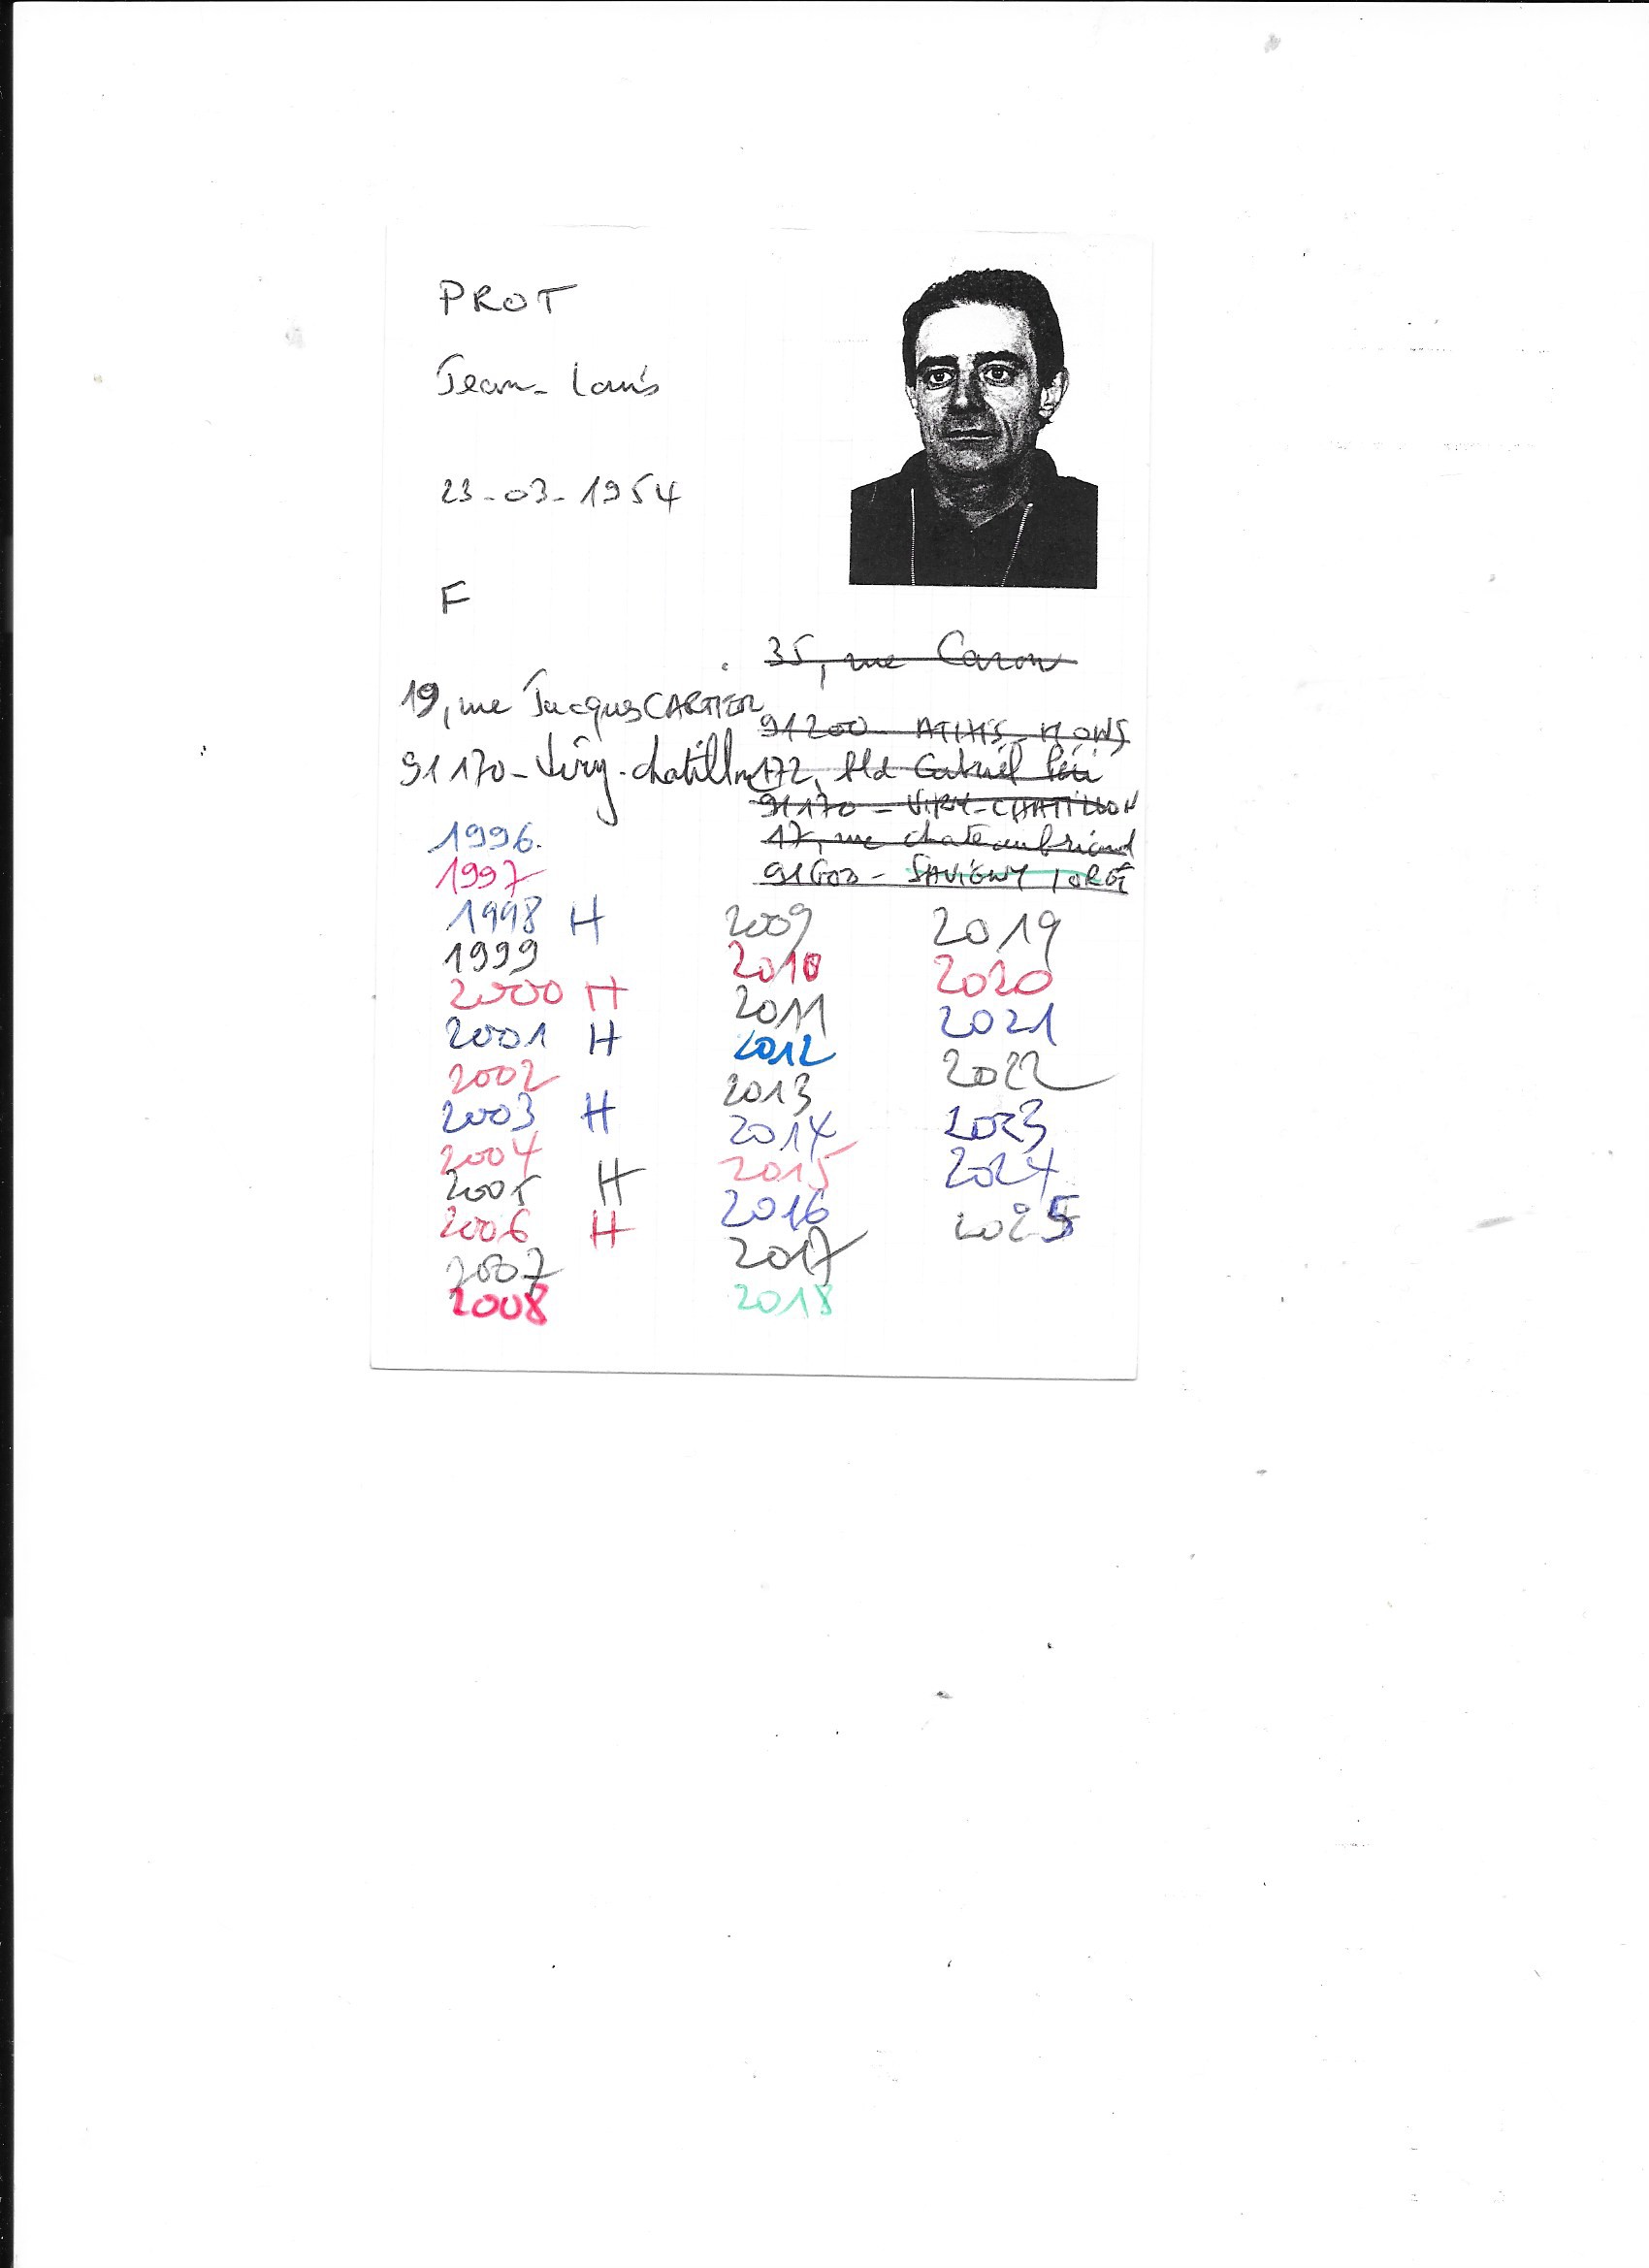 PROT
Jean-Louis
23-03-1954
F
35, rue Caron
91200 - ATHIS-MONS
172, Bld Gabriel Péri
91170 - VIRY-CHATILLON
17, rue chateaubriand
91600 - SAVIGNY / ORGE
19, rue Jacques CARTIER
91170 - Viry-chatillon
1996.
1997
1998 H
1999
2000 H
2001 H
2002
2003 H
2004
2005 H
2006 H
2007
2008
2009
2010
2011
2012
2013
2014
2015
2016
2017
2018
2019
2020
2021
2022
2023
2024
2025